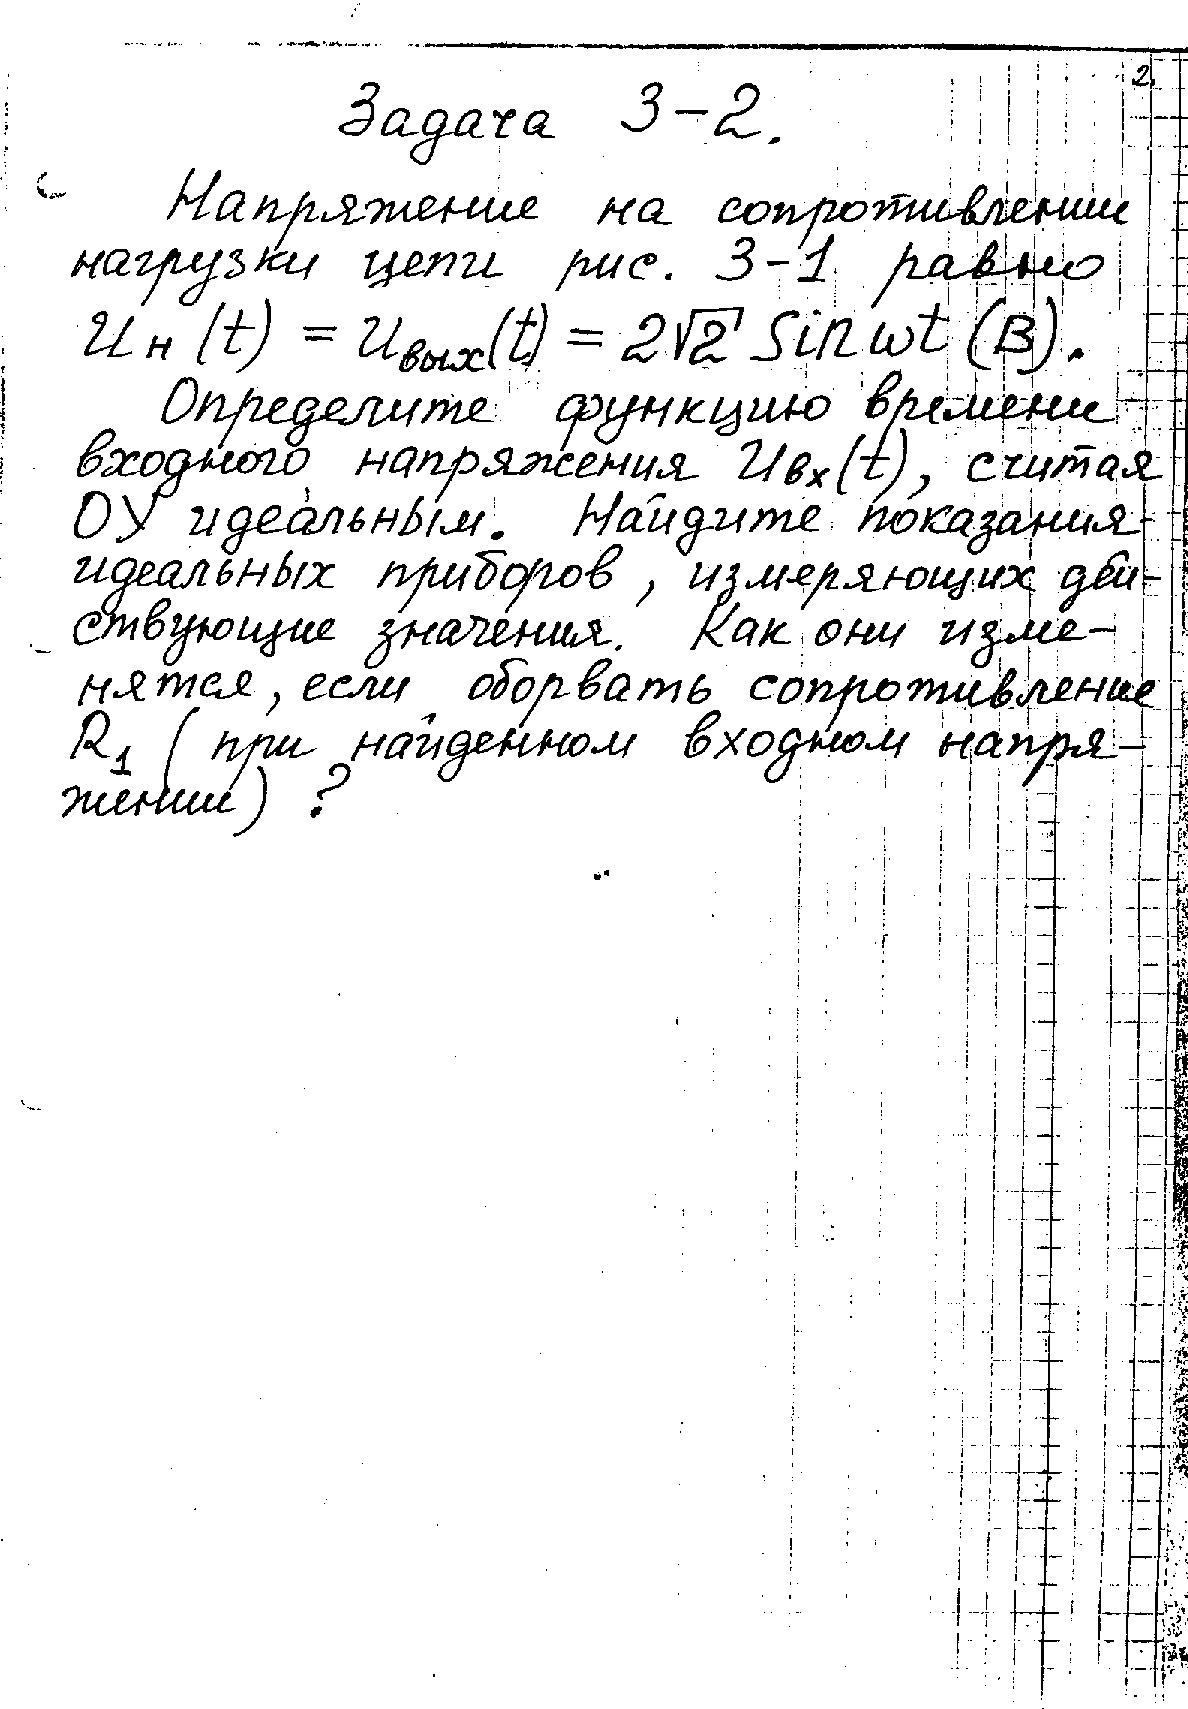 2.
Задача 3-2.
Напряжение на сопротивлении
нагрузки цепи рис. 3-1 равно
Uн(t) = Uвых(t) = 2√2 Sin ωt (В).
Определите функцию времени
входного напряжения Uвх(t), считая
ОУ идеальным. Найдите показания
идеальных приборов, измеряющих дей-
ствующие значения. Как они изме-
нятся, если оборвать сопротивление
R1 (при найденном входном напря-
жении)?